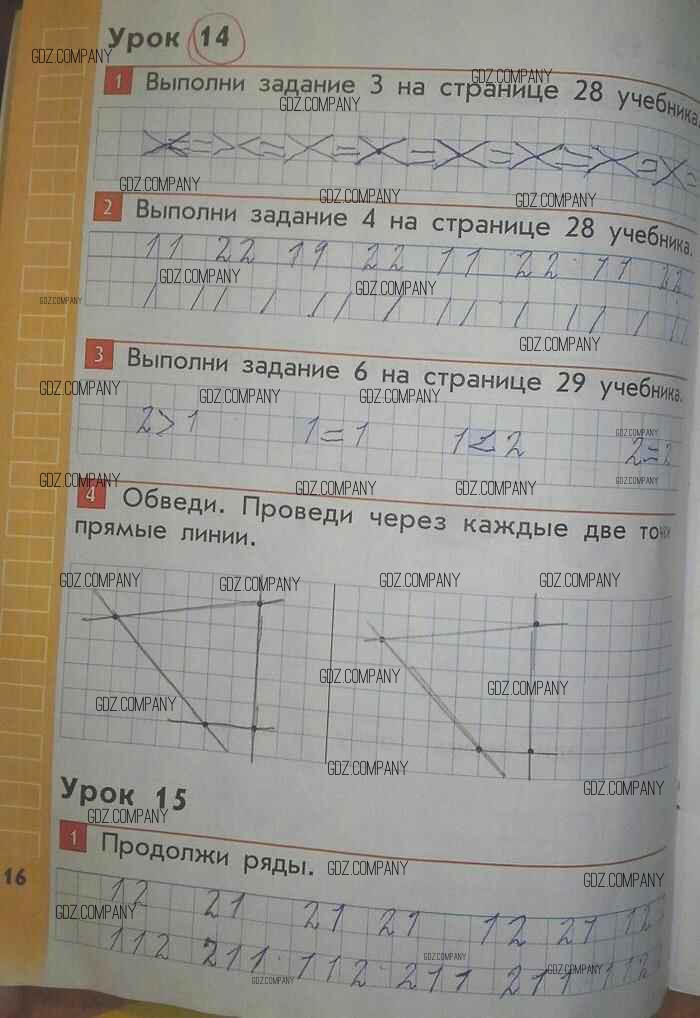 Урок 14
1 Выполни задание 3 на странице 28 учебника.
2 Выполни задание 4 на странице 28 учебника.
11 22 19 22 11 22 11 22
/ // / // / // / // / //
3 Выполни задание 6 на странице 29 учебника.
2>1 1=1 1<2 2=2
4 Обведи. Проведи через каждые две точки
прямые линии.
Урок 15
1 Продолжи ряды.
16
12 21 21 21 12 21 12
112 211 112 211 211 112
GDZ.COMPANY